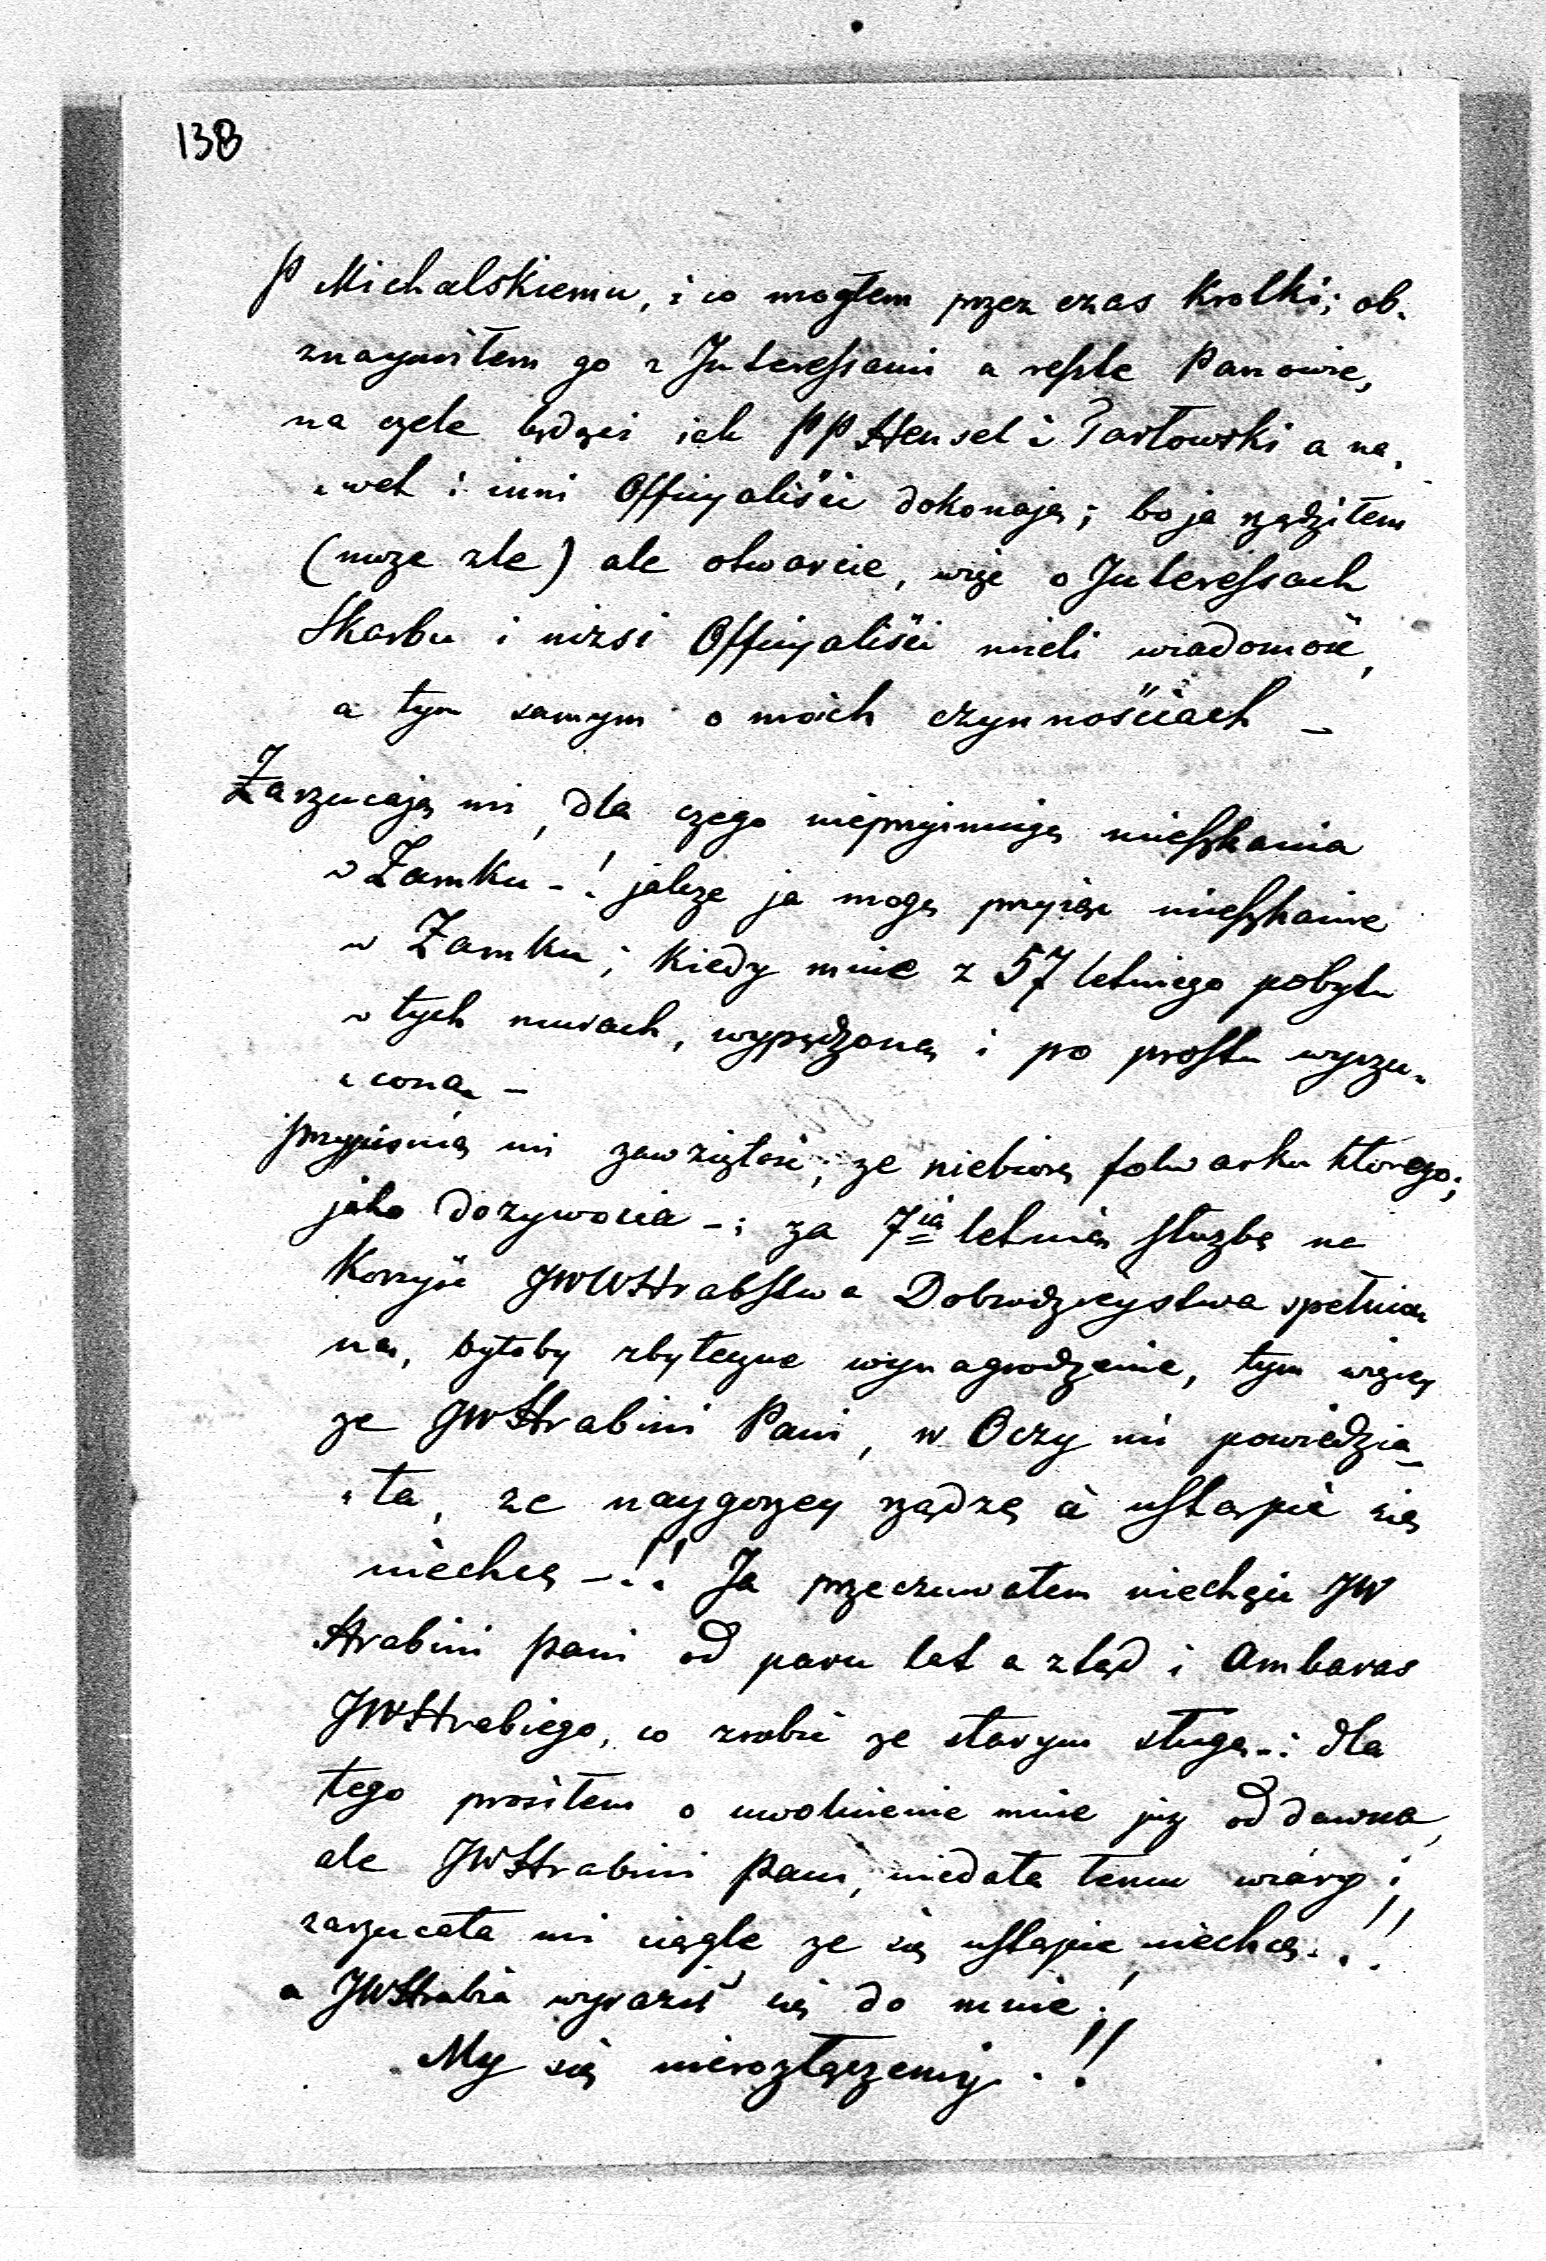 138
P Michalskiemu, i co mogłem przez czas krotki; ob„
znaymiłem go z Interessami a resztę Panowie,
na czele będący ich PP Hensel i Parłowski a na„
„wet i inni Officyaliści dokonają; bo ja rządziłem
(może zle) ale otwarcie, więc o Interessach
Skarbu i nizsi Officyaliści mieli wiadomość,
a tym samym o moich czynnościach –
Zarzucają mi, dla czego nieprzyimuję mieszkania
w Zamku –! jakże ja mogę przyiąć mieszkanie
w Zamku; kiedy mnie z 57 letniego pobytu
w tych murach, wypędzono i po prostu wyrzu„
„cono –
przypisują mi zawziętość; ze niebiorę folwarku ktorego;
jako dozywocia –; za 7ią letnią służbę na
Korzyść JWWHrabstwa Dobrodzieystwa spełnia„
ną, byłoby zbyteczne wynagrodzenie, tym więcey
ze JWHrabini Pani, w Oczy mi powiedzia„
„ła, ze naygorzey rządzę a ustąpić się
niechcę –!! Ja przeczuwałem niechęci JW
Hrabini pani od paru lat a ztąd i ambaras
JWHrabiego, co zrobić ze starym sługą –: dla
tego prosiłem o uwolnienie mnie już od dawna,
ale JWHrabini Pani, niedała temu wiary i
zarzucała mi ciągle ze się ustąpić niechcę..!!
a JWHrabia wyraził się do mnie!
My się nierozłączemy.!!